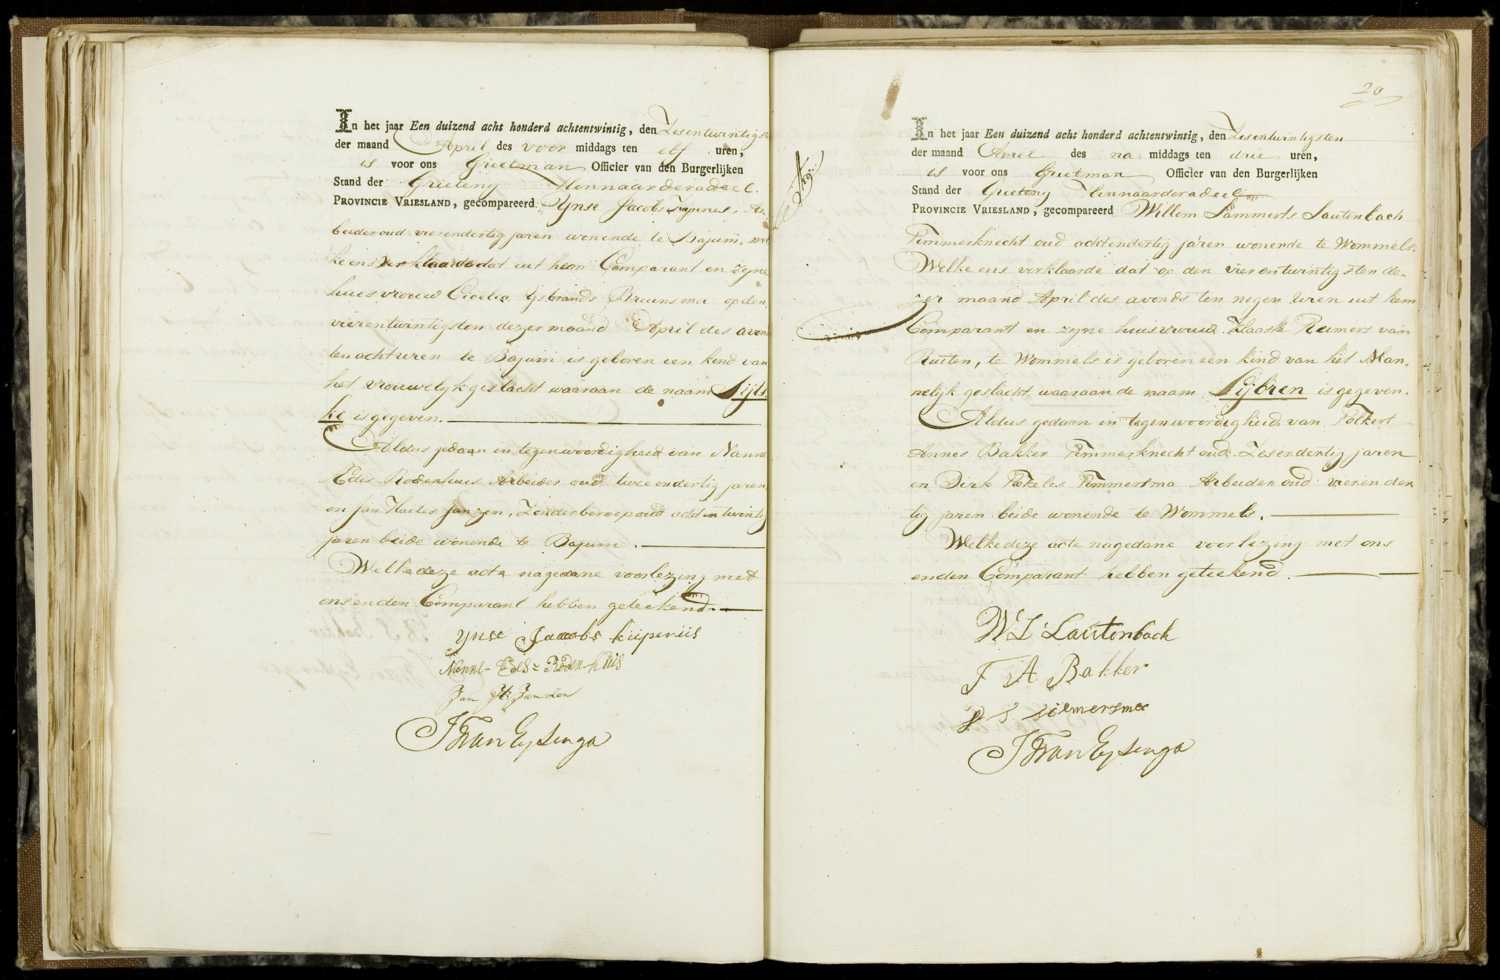 In het jaar Een duizend acht honderd achtentwintig, den Zesentwintigst
der maand April des voor middags ten elf uren,
is voor ons Grietman Officier van den Burgerlijken
Stand der Grieteny Hennaarderadeel.
PROVINCIE VRIESLAND, gecompareerd Ynse Jacobs
beider oud vierendertig jaren wonende te Bajum, wel
ke ens verklaarde dat uit hem Comparant en zyne
huisvrouw Ysbrands Bruinsma op den
vierentwintigsten dezer maand April des avonds
ten acht uren te Bajum is geboren een kind van
het vrouwelyk geslacht waaraan de naam Sijts
ke is gegeven.
Aldus gedaan in tegenwoordigheid van Nanne
Edes Rodenhuis Arbeider oud twee endertig jaren
en Jan Janzen, Zonder beroep oud acht en twintig
jaren beide wonende te Bajum.
Welke deze acte na gedane voorlezing met
ons en den Comparant hebben geteekend.
Ynse Jacobs kuiperüs
Nanne Edes Roden huis
Jan H Janzen
J F van Eysinga
20
19
In het jaar Een duizend acht honderd achtentwintig, den Zesentwintigsten
der maand April des na middags ten drie uren,
is voor ons Grietman Officier van den Burgerlijken
Stand der Grieteny Hennaarderadeel
PROVINCIE VRIESLAND, gecompareerd Willem Lammerts Lautenbach
Timmerknecht oud achtendertig jaren wonende te Wommels.
Welke ens verklaarde dat op den vierentwintigsten de-
zer maand April des avonds ten negen Uren uit hem
Comparant en zyne huisvrouw Klaaske Reimers van
Rusten, te Wommels is geboren een kind van het Man-
nelyk geslacht, waaraan de naam Sijbren is gegeven.
Aldus gedaan in tegenwoordigheid van Folkert
Annes Bakker Timmerknecht oud Zesendertig jaren
en Dirk Fokeles Timmersma Arbeider oud vierender
tig jaren beide wonende te Wommels.
Welke deze acte na gedane voorlezing met ons
en den Comparant hebben geteekend.
W L Lautenbach
F A Bakker
D F Tiemersma
J F van Eysinga